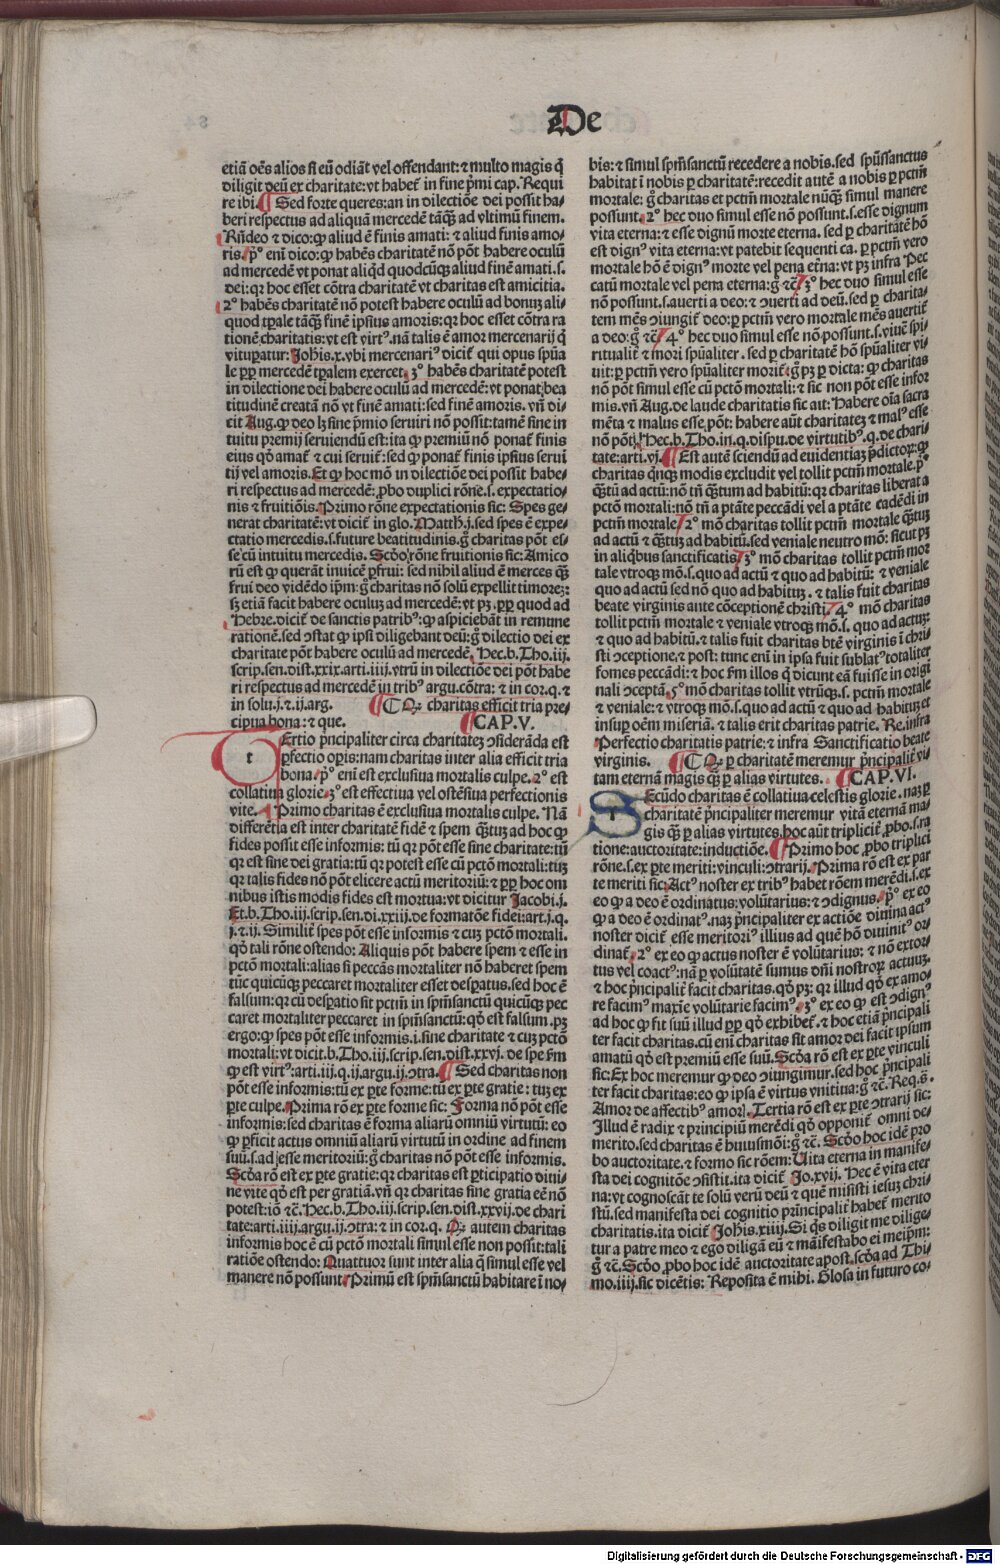 De
etiā oēs alios si eū odiāt vel offendant: ⁊ multo magis q̄
diligit deū ex charitate: vt habet̄ in fine p̄mi cap. Requi
re ibi. ¶ Sed forte queres: an in dilectiōe dei possit ha-
beri respectus ad aliquā mercedē tāq̄ȝ ad vltimū finem.
Rñdeo ⁊ dico: ꝙ aliud ē finis amati: ⁊ aliud finis amo-
ris. p̄º enī dico: ꝙ habēs charitatē nō pōt habere oculū
ad mercedē vt ponat aliqd̄ quodcūqȝ aliud finē amati. s.
dei: qꝛ hoc esset cōtra charitatē vt charitas est amicitia.
2º habēs charitatē nō potest habere oculū ad bonuȝ ali-
quod tpale tāq̄ȝ finē ipsius amoris: qꝛ hoc esset cōtra ra
tionē charitatis: vt est virtꝰ. nā talis ē amor mercenarij q̄
vituperatur: Johis. x. vbi mercenariꝰ dicit̄ qui opus spūa
le ꝓpꝛ mercedē tpalem exercet. 3º habēs charitatē potest
in dilectione dei habere oculū ad mercedē: vt ponat bea
titudinē creatā nō vt finē amati: sed finē amoris. vñ di-
cit Aug. ꝙ deo lȝ sine p̄mio seruiri nō possit: tamē sine in
tuitu premij seruiendū est: ita ꝙ premiū nō ponat̄ finis
eius qd̄ amat̄ ⁊ cui seruit̄: sed ꝙ ponat̄ finis ipsius serui
tij vel amoris. Et ꝙ hoc mō in dilectiōe dei possit habe-
ri respectus ad mercedē: ꝓbo duplici rōne. s. expectatio-
nis ⁊ fruitiōis. Primo rōne expectationis sic: Spes ge-
nerat charitatē: vt dicit̄ in glo. Matth. j. sed spes ē expe-
ctatio mercedis. s. future beatitudinis. g̊ charitas pōt es-
se cū intuitu mercedis. Scd̄o rōne fruitionis sic: Amico
rū est ꝙ querāt inuicē ꝑfrui: sed nihil aliud ē merces q̄ȝ
frui deo vidēdo ip̄m: g̊ charitas nō solū expellit timoreȝ:
sȝ etiā facit habere oculuȝ ad mercedē: vt pȝ. ꝓpꝛ quod ad
Hebre. dicit̄ de sanctis patribꝰ: ꝙ aspiciebāt in remune
rationē. sed ꝯstat ꝙ ipsi diligebant deū: g̊ dilectio dei ex
charitate pōt habere oculū ad mercedē. Hec. b. Tho. iij.
scrip. sen. dist. xxix. arti. iiij. vtrū in dilectiōe dei pōt habe
ri respectus ad mercedē in tribꝰ argu. cōtra: ⁊ in coꝛ. q. ⁊
in solu. j. ⁊ ij. arg. ¶ Cꝙ charitas efficit tria pre-
cipua bona: ⁊ que. ¶ CAP. V.
t Ertio p̄ncipaliter circa charitateȝ ꝯsiderāda est
ꝑfectio opis: nam charitas inter alia efficit tria
bona. p̄º enī est exclusiua mortalis culpe. 2º est
collatiua glorie. 3º est effectiua vel ostēsiua perfectionis
vite. ¶ Primo charitas ē exclusiua mortalis culpe. Nā
differētia est inter charitatē fidē ⁊ spem q̄ȝtuȝ ad hoc ꝙ
fides possit esse informis: tū qꝛ pōt esse sine charitate: tū
qꝛ est sine dei gratia: tū qꝛ potest esse cū pctō mortali: tuȝ
qꝛ talis fides nō pōt elicere actū meritoriū: ⁊ ꝓpꝛ hoc om
nibus istis modis fides est mortua: vt dicitur Jacobi. j.
Et. b. Tho. iij. scrip. sen. di. xxiij. de formatōe fidei: art. j. q.
j. ⁊ ij. Similit̄ spes pōt esse informis ⁊ cuȝ pctō mortali.
qd̄ tali rōne ostendo: Aliquis pōt habere spem ⁊ esse in
pctō mortali: alias si peccās mortaliter nō haberet spem
tūc quicūqȝ peccaret mortaliter esset desꝑatus. sed hoc ē
falsum: qꝛ cū desꝑatio sit pctm̄ in spm̄sanctū quicūqȝ pec
caret mortaliter peccaret in spm̄sanctū: qd̄ est falsum. pȝ
ergo: ꝙ spes pōt esse informis. i. sine charitate ⁊ cuȝ pctō
mortali: vt dicit. b. Tho. iij. scrip. sen. dist. xxvj. de spe fm̄
ꝙ est virtꝰ: arti. iij. q. ij. argu. ij. ꝯtra. ¶ Sed charitas non
pōt esse informis: tū ex pte forme: tū ex pte gratie: tuȝ ex
pte culpe. Prima rō ex pte forme sic: Forma nō pōt esse
informis: sed charitas ē forma aliarū omniū virtutū: eo
ꝙ ꝑficit actus omniū aliarū virtutū in ordine ad finem
suū. s. ad esse meritoriū: g̊ charitas nō pōt esse informis.
Scd̄a rō est ex pte gratie: qꝛ charitas est ꝑticipatio diui-
ne vite qd̄ est per gratiā. vñ qꝛ charitas sine gratia eē nō
potest: iō ⁊c̄. Hec. b. Tho. iij. scrip. sen. dist. xxvij. de chari
tate: arti. iiij. argu. ij. ꝯtra: ⁊ in coꝛ. q. Qꝛ autem charitas
informis hoc ē cū pctō mortali simul esse non possit: tali
ratiōe ostendo: Quattuoꝛ sunt inter alia q̄ simul esse vel
manere nō possunt. Primū est spm̄sanctū habitare ī no-
bis: ⁊ simul spm̄sanctū recedere a nobis. sed spūssanctus
habitat ī nobis ꝑ charitatē: recedit autē a nobis ꝑ pctm̄
mortale: g̊ charitas et pctm̄ mortale nūq̄ȝ simul manere
possunt. 2º hec duo simul esse nō possunt. s. esse dignum
vita eterna: ⁊ esse dignū morte eterna. sed ꝑ charitatē hō
est dignꝰ vita eterna: vt patebit sequenti ca. ꝑ pctm̄ vero
mortale hō ē dignꝰ morte vel pena et̄na: vt pȝ infra Pec
catū mortale vel pena eterna: g̊ ⁊c̄. 3º hec duo simul esse
nō possunt. s. auerti a deo: ⁊ ꝯuerti ad deū. sed ꝑ charita-
tem mēs ꝯiungit̄ deo: ꝑ pctm̄ vero mortale mēs auertit̄
a deo: g̊ ⁊c̄. 4º hec duo simul esse nō possunt. s. viuē spi-
ritualit̄ ⁊ mori spūaliter. sed ꝑ charitatē hō spūaliter vi
uit: ꝑ pctm̄ vero spūaliter morit̄: g̊ pȝ ꝑ dicta: ꝙ charitas
nō pōt simul esse cū pctō mortali: ⁊ sic non pōt esse infor
mis. vñ Aug. de laude charitatis sic ait: Habere oīa sacra
mēta ⁊ malus esse pōt: habere aūt charitateȝ ⁊ malꝰ esse
nō pōt. Hec. b. Tho. in. q. dispu. de virtutibꝰ. q. de chari-
tate: arti. vj. ¶ Est autē sciendū ad euidentiaȝ p̄dictoꝝ: ꝙ
charitas q̄nqȝ modis excludit vel tollit pctm̄ mortale. p̄º
q̄ȝtū ad actū: nō tn̄ q̄ȝtum ad habitū: qꝛ charitas liberat a
pctō mortali: nō tn̄ a p̄tāte peccādi vel a p̄tate cadēdi in
pctm̄ mortale. 2º mō charitas tollit pctm̄ mortale q̄ȝtuȝ
ad actū ⁊ q̄ȝtuȝ ad habitū. sed veniale neutro mō: sicut pȝ
in aliqbus sanctificatis. 3º mō charitas tollit pctm̄ mor
tale vtroqȝ mō. s. quo ad actū ⁊ quo ad habitū: ⁊ veniale
quo ad actū sed nō quo ad habituȝ. ⁊ talis fuit charitas
beate virginis ante cōceptionē christi. 4º mō charitas
tollit pctm̄ mortale ⁊ veniale vtroqȝ mō. s. quo ad actuȝ
⁊ quo ad habitū. ⁊ talis fuit charitas btē virginis ī chri-
sti ꝯceptione. ⁊ post: tunc enī in ipsa fuit sublatꝰ totaliter
fomes peccādi: ⁊ hoc fm̄ illos q̄ dicunt eā fuisse in origi
nali ꝯceptā. 5º mō charitas tollit vtrūqȝ. s. pctm̄ mortale
⁊ veniale: ⁊ vtroqȝ mō. s. quo ad actū ⁊ quo ad habituȝ et
insuꝑ oēm miseriā. ⁊ talis erit charitas patrie. Re. infra
Perfectio charitatis patrie: ⁊ infra Sanctificatio beate
virginis. ¶ Cꝙ ꝑ charitatē meremur p̄ncipalit̄ vi
tam eternā magis q̄ȝ ꝑ alias virtutes. ¶ CAP. VI.
s Ecūdo charitas ē collatiua celestis glorie. naȝ ꝑ
charitatē p̄ncipaliter meremur vitā eternā ma-
gis q̄ȝ ꝑ alias virtutes. hoc aūt triplicit̄ ꝓbo. s. ra
tione: auctoritate: inductiōe. ¶ Primo hoc ꝓbo triplici
rōne. s. ex pte meriti: vinculi: ꝯtrarij. Prima rō est ex par
te meriti sic: Actꝰ noster ex tribꝰ habet rōem merēdi. s. ex
eo ꝙ a deo ē ordinatus: volūtarius: ⁊ ꝯdignus. p̄º ex eo
ꝙ a deo ē ordinatꝰ. naȝ p̄ncipaliter ex actiōe diuina actꝰ
noster dicit̄ esse meritoriꝰ illius ad quē hō diuinitꝰ or-
dinat̄. 2º ex eo ꝙ actus noster ē volūtarius: ⁊ nō extor-
tus vel coactꝰ: nā ꝑ volūtatē sumus dn̄i nostroꝝ actuuȝ.
⁊ hoc p̄ncipalit̄ facit charitas. qd̄ pȝ: qꝛ illud qd̄ ex amo-
re facimꝰ maxīe volūtarie facimꝰ. 3º ex eo ꝙ est ꝯdignꝰ
ad hoc ꝙ fit suū illud ꝓpꝛ qd̄ exhibet̄. ⁊ hoc etiā p̄ncipali
ter facit charitas. cū enī charitas sit amor dei facit ipsum
amatū qd̄ est premiū esse suū. Scd̄a rō est ex pte vinculi
sic: Ex hoc meremur ꝙ deo ꝯiungimur. sed hoc p̄ncipali
ter facit charitas: eo ꝙ ipsa ē virtus vnitiua: g̊ ⁊c̄. Req. s.
Amor de affectibꝰ amoꝝ. Tertia rō est ex pte ꝯtrarij sic:
Illud ē radix ⁊ principiū merēdi qd̄ opponit̄ omni de-
merito. sed charitas ē huiusmōi: g̊ ⁊c̄. Scd̄o hoc idē pro
bo auctoritate. ⁊ formo sic rōem: Uita eterna in manife-
sta dei cognitōe ꝯsistit. ita dicit̄ Jo. xvij. Hec ē vita eter
na: vt cognoscāt te solū verū deū ⁊ quē misisti iesuȝ chri-
stū. sed manifesta dei cognitio principalit̄ habet̄ merito
charitatis. ita dicit̄ Johis. xiiij. Si q̄s diligit me dilige-
tur a patre meo ⁊ ego diligā eū ⁊ māifestabo ei meip̄m:
g̊ ⁊c̄. Scd̄o ꝓbo hoc idē auctoritate apost. scd̄a ad Thi-
mo. iiij. sic dicētis: Reposita ē mihi. Glosa in futuro co-
Digitalisierung gefördert durch die Deutsche Forschungsgemeinschaft - DFG